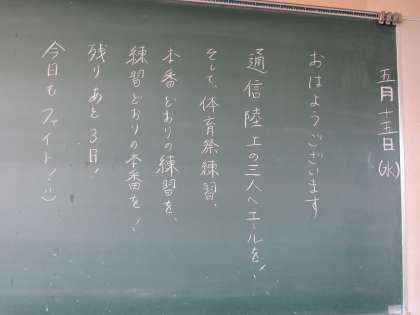 五月十五日(水)
おはようございます
通信陸上の三人へエールを!
そして、体育祭練習、
本番どおりの練習を、
練習どおりの本番を!
残りあと3日!
今日もファイト!:)